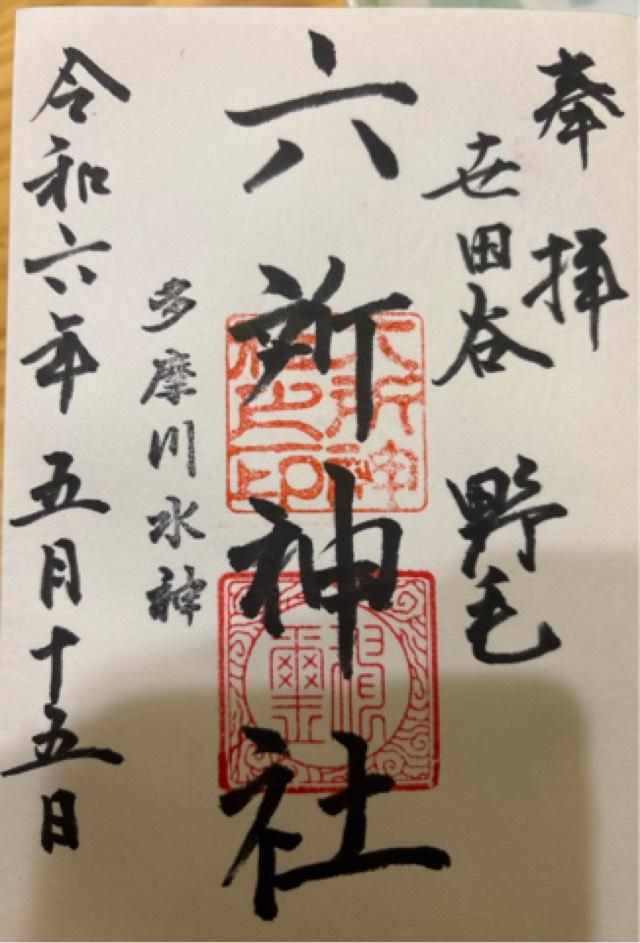 奉拝
世田谷 野毛
六所神社
六所神社之印
神璽
多摩川水神
令和六年五月十五日